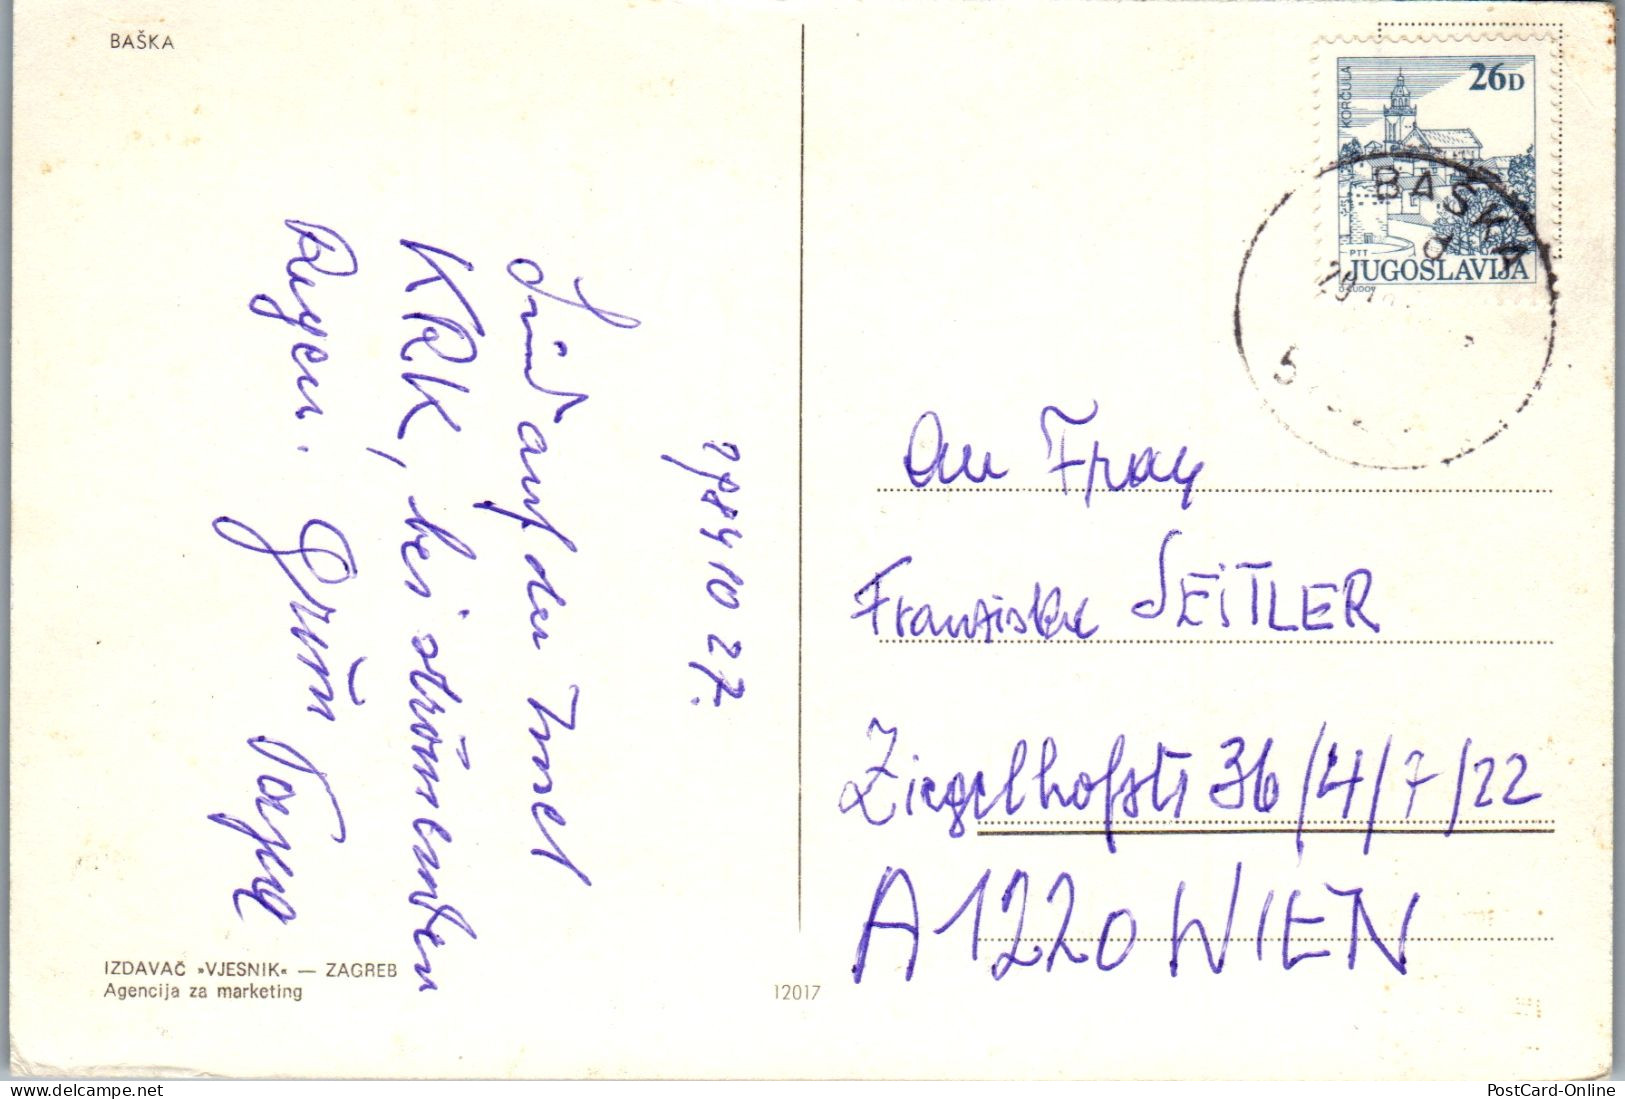 BAŠKA
26D
KORČULA
PTT
JUGOSLAVIJA
BAŠKA
d
5
1984 10 27.
Sind auf der Insel
KRK, bei strömenden
Regen. Grüß
An Frau
Franziska SEITLER
Ziegelhofstr 36/4/7/22
A 1220 WIEN
IZDAVAČ »VJESNIK« — ZAGREB
Agencija za marketing
12017
delcampe.net
PostCard-Online